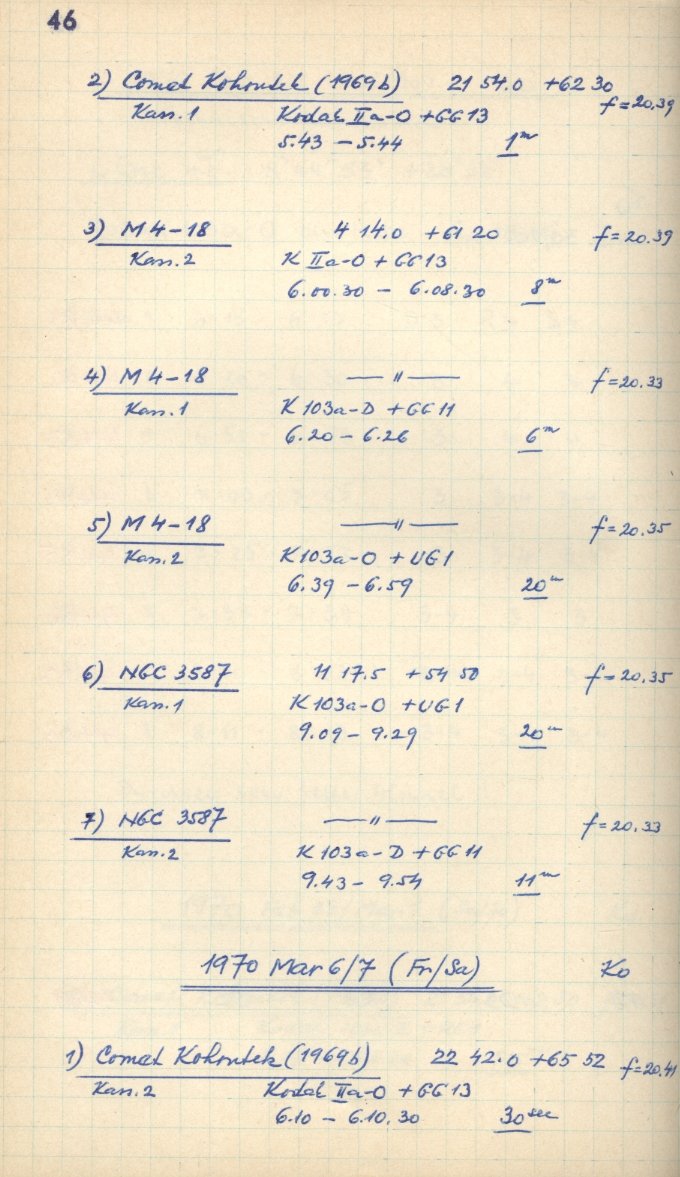 46
2) Comet Kohoutek (1969b) 21 54.0 +62 30 f=20.39
Kass.1 Kodak IIa-O +GG13
5.43 – 5.44 1m
3) M 4-18 4 14.0 +61 20 f=20.39
Kass.2 K IIa-O + GG13
6.00.30 – 6.08.30 8m
4) M 4-18 — " — f=20.33
Kass.1 K 103a-D + GG11
6.20 – 6.26 6m
5) M 4-18 — " — f=20.35
Kass.2 K 103a-O + UG1
6.39 – 6.59 20m
6) NGC 3587 11 17.5 +54 50 f=20.35
Kass.1 K 103a-O +UG1
9.09 – 9.29 20m
7) NGC 3587 — " — f=20.33
Kass.2 K 103a-D + GG11
9.43 – 9.54 11m
1970 Mar 6/7 (Fr/Sa) Ko
1) Comet Kohoutek (1969b) 22 42.0 +65 52 f=20.41
Kass.2 Kodak IIa-O + GG13
6.10 – 6.10.30 30sec